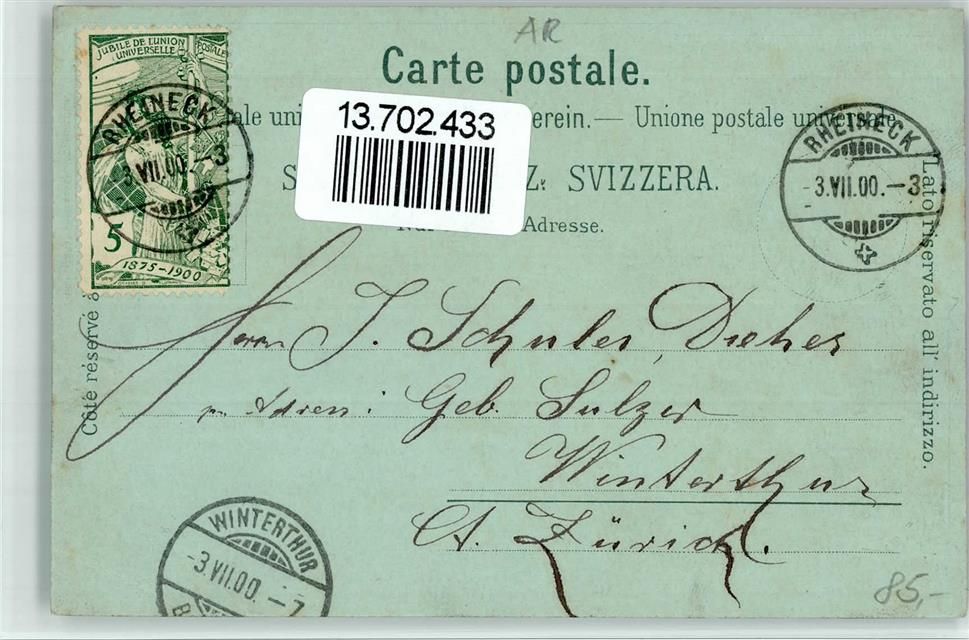 AR
JUBILÉ DE L'UNION POSTALE
UNIVERSELLE
Carte postale.
13.702.433
Unione postale universale
erein.—
SVIZZERA.
Adresse.
RHEINECK
3.VII.00.—3
5
1875–1900
RHEINECK
-3.VII.00.—3
Côté réservé à
Lato riservato all' indirizzo.
Herrn J. Schuler, Dreher
p. Adress: Geb. Sulzer
Winterthur
Ct. Zürich.
WINTERTHUR
-3.VII.00.—7
85,-